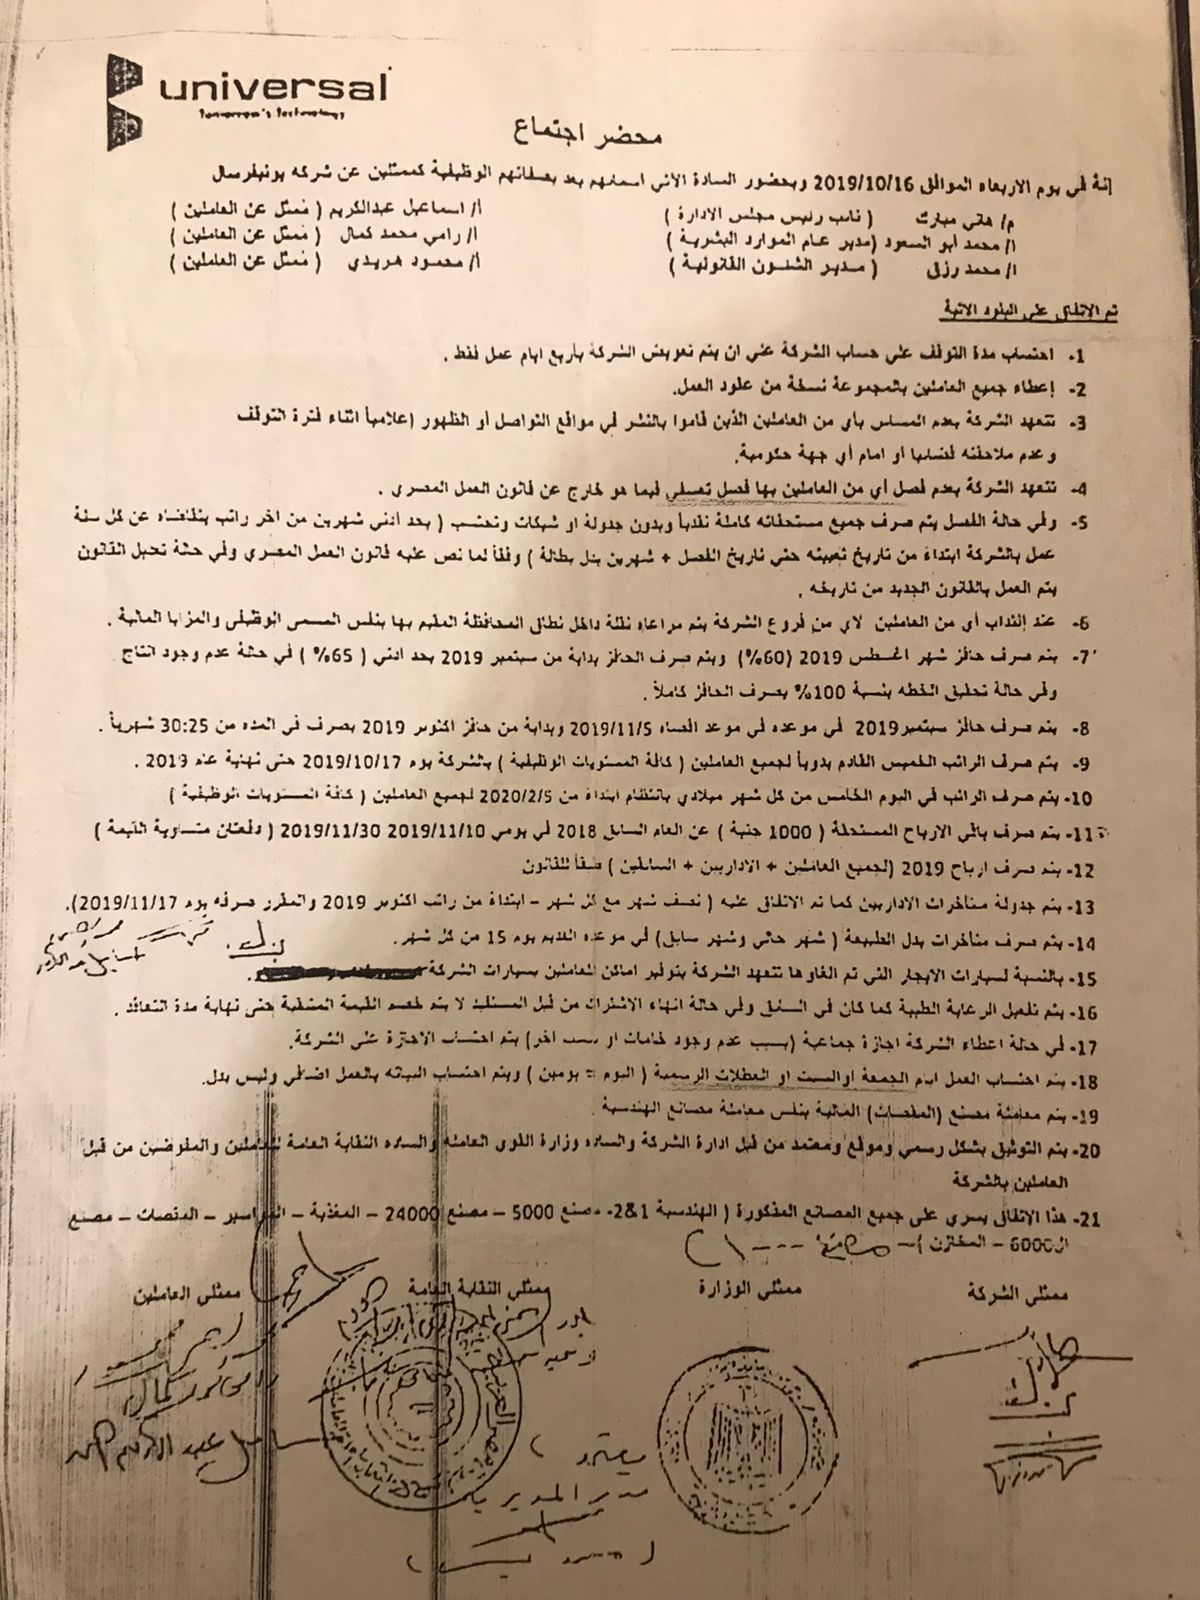 universal
Tomorrow's Technology
محضر اجتماع
إنة في يوم الاربعاء الموافق 2019/10/16 وبحضور السادة الاتي اسمائهم بعد بصفاتهم الوظيفية كممثلين عن شركه يونيفرسال
م/ هاني مبارك ( نائب رئيس مجلس الادارة ) أ/ اسماعيل عبدالكريم ( مُمثل عن العاملين )
ا/ محمد أبو السعود (مدير عام الموارد البشرية ) ا/ رامي محمد كمال ( مُمثل عن العاملين )
ا/ محمد رزق ( مدير الشئون القانونية ) أ/ محمود هريدي ( مُمثل عن العاملين )
تم الإتفاق على البنود الاتية
1- احتساب مدة التوقف على حساب الشركة على ان يتم تعويض الشركة بأربع ايام عمل فقط .
2- إعطاء جميع العاملين بالمجموعة نسخة من عقود العمل.
3- تتعهد الشركة بعدم المساس بأي من العاملين الذين قاموا بالنشر في مواقع التواصل أو الظهور إعلامياً اثناء فترة التوقف
وعدم ملاحقته قضليا او امام أي جهة حكومية.
4- تتعهد الشركة بعدم فصل أي من العاملين بها فصل تعسفي فيما هو خارج عن قانون العمل المصري .
5- وفي حالة الفصل يتم صرف جميع مستحقاته كاملة نقدياً وبدون جدولة او شيكات وتحتسب ( بحد أدني شهرين من اخر راتب يتقاضاه عن كل سنة
عمل بالشركة ابتداءً من تاريخ تعيينه حتي تاريخ الفصل + شهرين بدل بطالة ) وفقاً لما نص عليه قانون العمل المصري وفي حالة تعديل القانون
يتم العمل بالقانون الجديد من تاريخه .
6- عند إنتداب أي من العاملين لاي من فروع الشركة يتم مراعاه نقله داخل نطاق المحافظة المقيم بها بنفس المسمى الوظيفى والمزايا المالية .
7- يتم صرف حافز شهر اغسطس 2019 (60%) ويتم صرف الحافز بداية من سبتمبر 2019 بحد ادني ( 65% ) في حالة عدم وجود انتاج
وفي حالة تحقيق الخطه بنسبة 100% يصرف الحافز كاملاً .
8- يتم صرف حافز سبتمبر2019 في موعده في موعد اقصاه 2019/11/5 وبداية من حافز اكتوبر 2019 يصرف في المده من 30:25 شهرياً .
9- يتم صرف الراتب الخميس القادم يدوياً لجميع العاملين ( كافة المستويات الوظيفية ) بالشركة يوم 2019/10/17 حتى نهاية عام 2019 .
10- يتم صرف الراتب في اليوم الخامس من كل شهر ميلادي بانتظام ابتداءً من 2020/2/5 لجميع العاملين ( كافة المستويات الوظيفية )
11- يتم صرف باقي الارباح المستحقة ( 1000 جنية ) عن العام السابق 2018 في يومي 2019/11/10 2019/11/30 ( دفعتان متساوية القيمة )
12- يتم صرف ارباح 2019 (لجميع العاملين + الاداريين + السائقين ) طبقاً للقانون
13- يتم جدولة متأخرات الاداريين كما تم الاتفاق عليه ( نصف شهر مع كل شهر – ابتداءً من راتب اكتوبر 2019 والمقرر صرفه يوم 2019/11/17).
14- يتم صرف متأخرات بدل الطبيعة ( شهر حالي وشهر سابق) في موعده القديم يوم 15 من كل شهر.
15- بالنسبة لسيارات الإيجار التي تم الغاؤها تتعهد الشركة بتوفير اماكن للعاملين بسيارات الشركة
16- يتم تفعيل الرعاية الطبية كما كان في السابق وفي حالة انهاء الاشتراك من قبل المستفيد لا يتم خصم القيمة المتبقية حتى نهاية مدة التعاقد .
17- في حالة اعطاء الشركة اجازة جماعية (بسبب عدم وجود خامات او سبب اخر) يتم احتساب الاجازة على الشركة.
18- يتم احتساب العمل ايام الجمعة اوالسبت او العطلات الرسمية ( اليوم = يومين ) ويتم احتساب البياته بالعمل اضافي وليس بدل.
19- يتم معاملة مصنع (المقصات) المالية بنفس معاملة مصانع الهندسية
20- يتم التوثيق بشكل رسمي وموقع ومعتمد من قبل ادارة الشركة والساده وزارة القوى العاملة والساده النقابة العامة للعاملين والمفوضين من قبل
العاملين بالشركة
21- هذا الاتفاق يسري على جميع المصانع المذكورة ( الهندسية 1&2- مصنع 5000 – مصنع 24000 – المغذية – المواسير – المقصات – مصنع
ال6000 – المخازن
ممثلي الشركة ممثلي الوزارة ممثلي النقابة العامة ممثلي العاملين